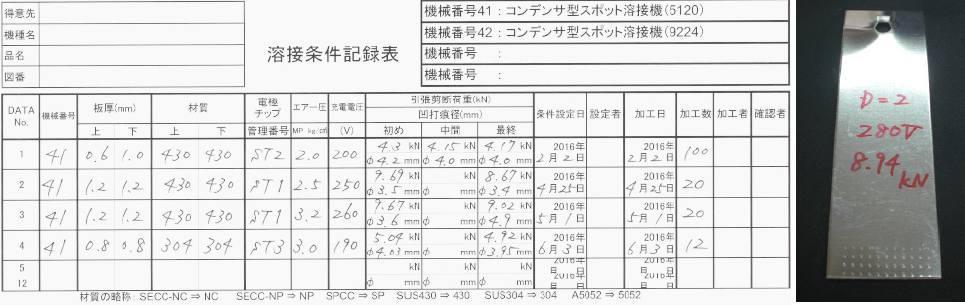 得意先
機種名
品名
図番
溶接条件記録表
機械番号41：コンデンサ型スポット溶接機(5120)
機械番号42：コンデンサ型スポット溶接機(9224)
機械番号 ：
機械番号 ：
DATA No. 機械番号 板厚(mm) 上 下 材質 上 下 電極チップ 管理番号 エアー圧 MP kg/c㎡ 充電電圧 (V) 引張剪断荷重(kN) 凹打痕径(mm) 初め 中間 最終 条件設定日 設定者 加工日 加工数 加工者 確認者
1 41 0.6 1.0 430 430 ST2 2.0 200 4.3 kN 4.15 kN 4.17 kN 2016年 2016年 100
φ4.2 mm φ4.0 mm φ4.0 mm 2月2日 2月2日
2 41 1.2 1.2 430 430 ST1 2.5 250 9.69 kN kN 8.67 kN 2016年 2016年 20
φ3.5 mm φ mm φ3.4 mm 4月25日 4月25日
3 41 1.2 1.2 430 430 ST1 3.2 260 9.67 kN kN 9.02 kN 2016年 2016年 20
φ3.6 mm φ mm φ4.9 mm 5月1日 5月1日
4 41 0.8 0.8 304 304 ST3 3.0 190 5.04 kN kN 4.92 kN 2016年 2016年 12
φ4.03 mm φ mm φ3.95 mm 6月3日 6月3日
5 kN kN kN 2016年 2016年
12 φ mm φ mm φ mm
材質の略称：SECC-NC ⇒ NC SECC-NP ⇒ NP SPCC ⇒ SP SUS430 ⇒ 430 SUS304 ⇒ 304 A5052 ⇒ 5052
D=2
280V
8.94
kN